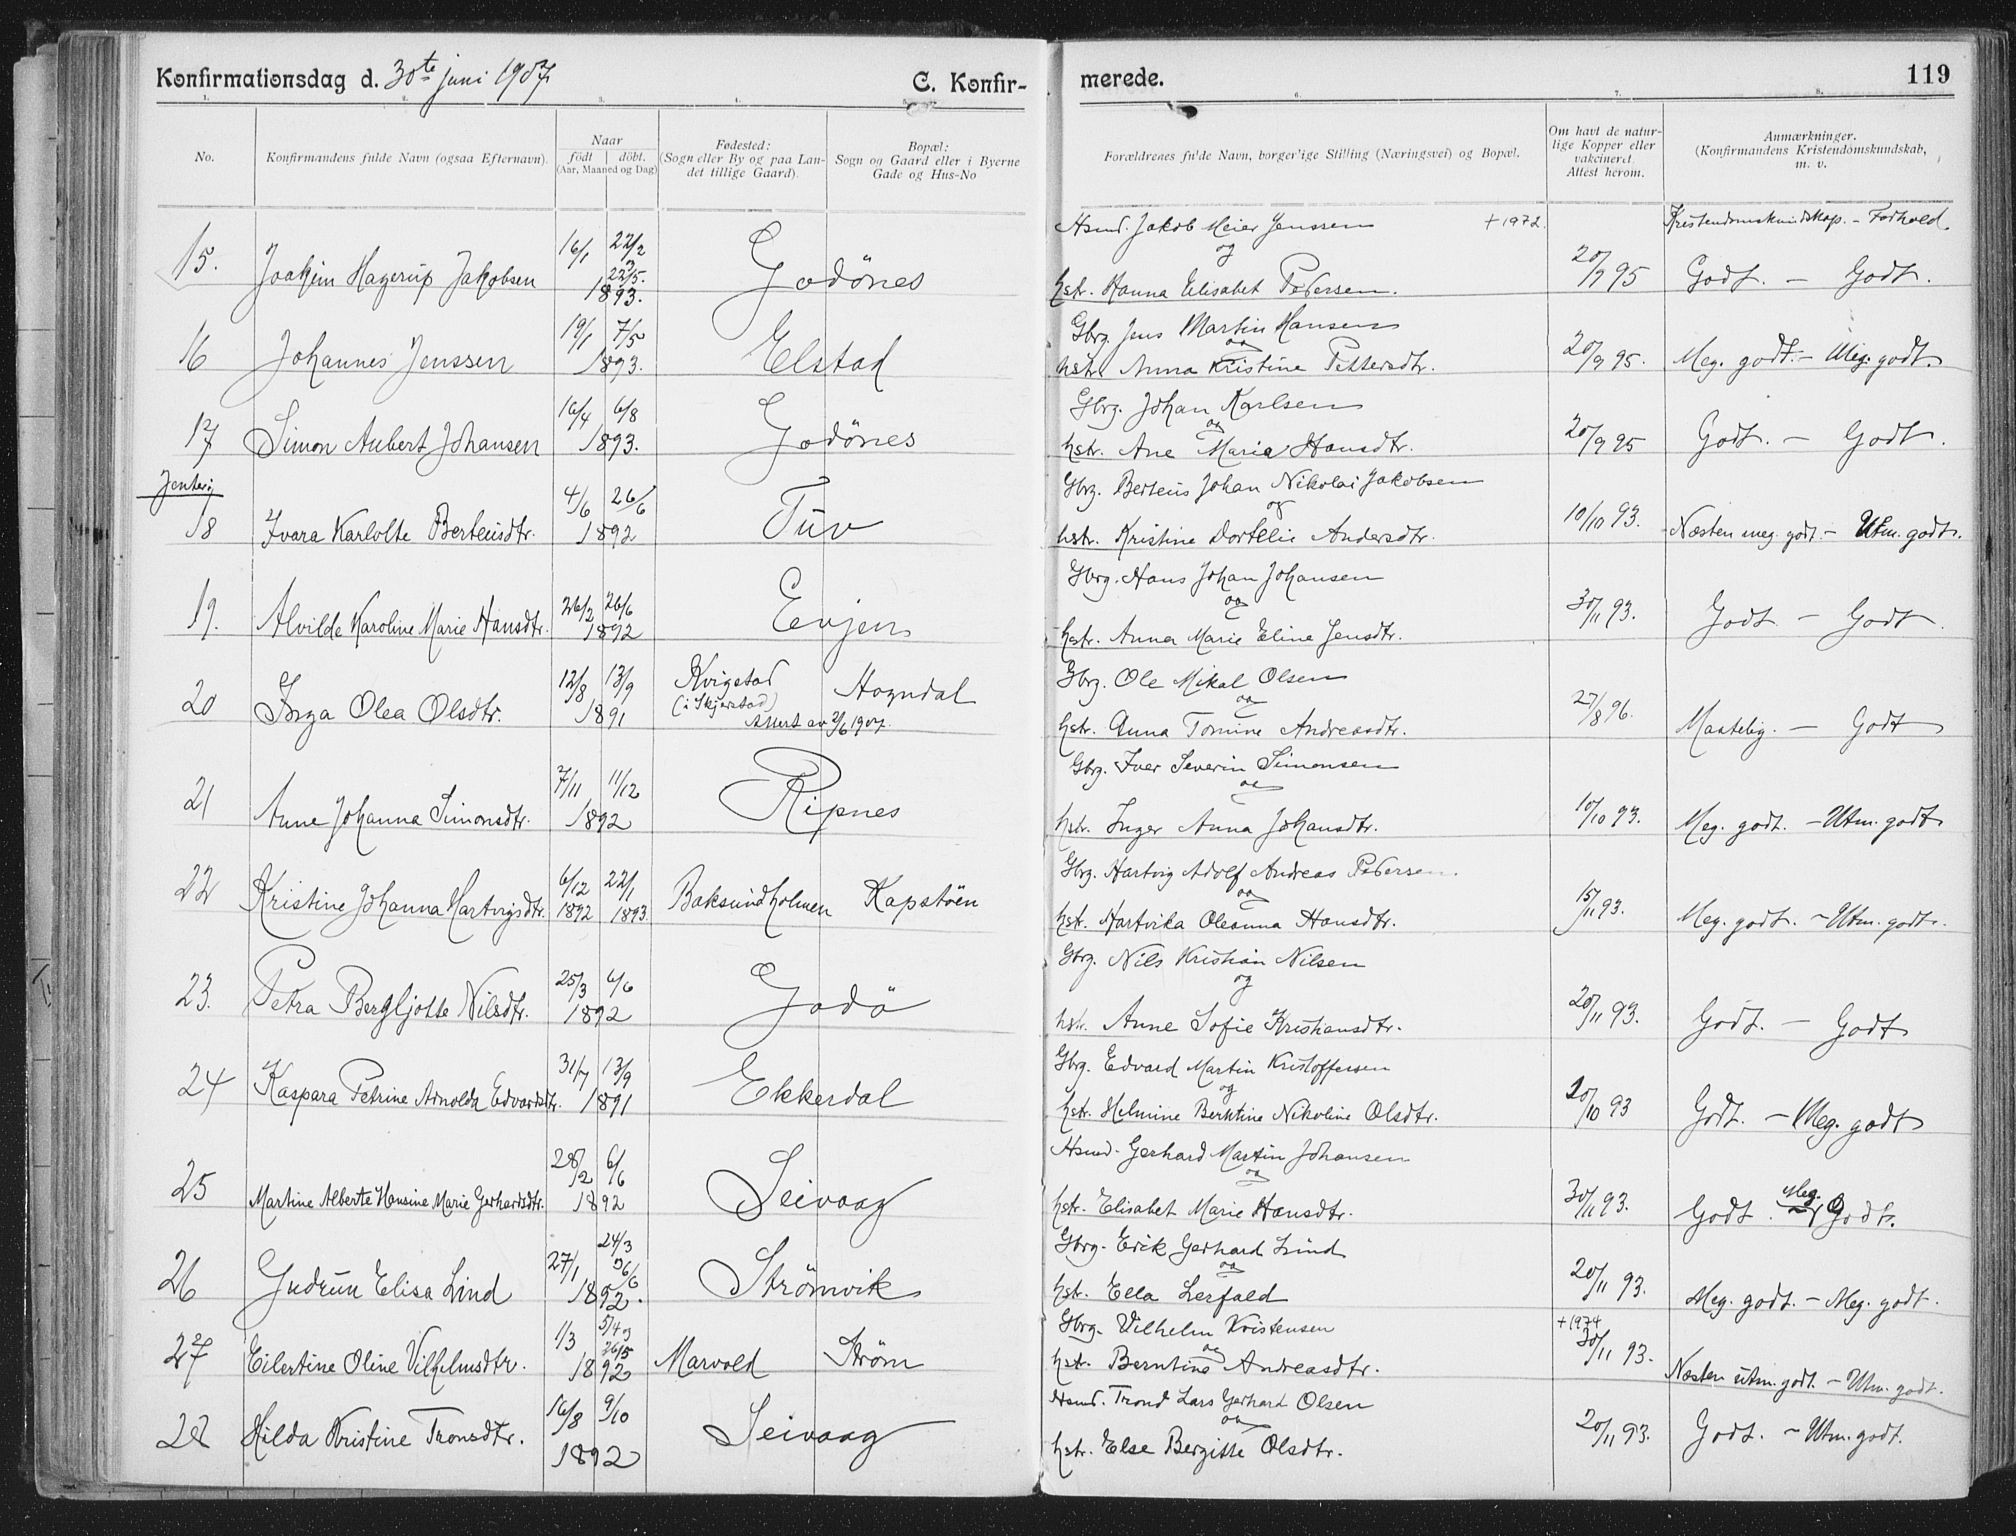 Konfirmationsdag d. 30te juni 1907. C. Konfir-
merede. 119
1. 2. 3. 4. 6. 7. 8.
No. Konfirmandens fulde Navn (ogsaa Efternavn). Naar født døbt. (Aar, Maaned og Dag) Fødested: (Sogn eller By og paa Landet tillige Gaard). Bopæl: Sogn og Gaard eller i Byerne Gade og Hus-No
Forældrenes fulde Navn, borgerlige Stilling (Næringsvei) og Bopæl. Om havt de naturlige Kopper eller vakcineret. Attest herom. Anmærkninger. (Konfirmandens Kristendomskundskab, m. v.
Kristendomskundskap. - Forhold.
Hsmd. Jakob Meier Jenssen +1972.
og
15. Joakim Hagerup Jakobsen 16/1 22/2 3 22/5. 1893. Godönes hstr. Hanna Elisabet Pedersen. 20/9 95 Godt. - Godt.
Gbrg. Jens Martin Hansen
og
16 Johannes Jenssen 19/1 7/5 1893. Elstad hstr. Anna Kristine Pettersdtr. 20/9 95. Meg. godt. - Meg. godt.
Gbrg. Johan Karlsen
og
17 Simon Aubert Johansen 16/4 6/8 1893. Godönes hstr. Ane Maria Hansdtr. 20/9 95 Godt. - Godt.
Jenter:
Gbrg. Berteus Johan Nikolai Jakobsen
og
18 Ivara Karlotte Berteusdtr. 4/6 26/6 1892 Tuv hstr. Kristine Dortelie Andersdtr. 10/10 93. Næsten meg. godt. - Utm. godt.
Gbrg. Hans Johan Johansen
og
19. Alvilde Karoline Marie Hansdtr. 26/2 26/6 1892 Evjen hstr. Anna Marie Eline Jensdtr. 30/11 93. Godt - Godt.
Gbrg. Ole Mikal Olsen
og
20 Inga Olea Olsdtr. 12/8 13/9 1891 Kvigstad (i Skjerstad) Attest av 2/6 1907. Hogndal hstr. Anna Tomine Andreasdtr. 27/8 96. Maatelig. - Godt
Gbrg. Iver Severin Simonsen
og
21 Anne Johanna Simonsdtr. 7/11 11/12 1892 Ripnes hstr. Inger Anna Johansdtr. 10/10 93. Meg. godt. - Utm. godt
Gbrg. Hartvig Adolf Andreas Pedersen.
og
22 Kristine Johanna Hartvigsdtr. 6/12 1892 22/1 1893. Baksundholmen Kapstöen hstr. Hartvika Oleanna Hansdtr. 15/11 93. Meg. godt. - Utm. godt.
Gbrg. Nils Kristian Nilsen
og
23. Petra Bergljotte Nilsdtr. 25/3 6/6 1892 Godö hstr. Anne Sofie Kristiansdtr. 20/11 93. Godt. - Godt
Gbrg. Edvard Martin Kristoffersen
og
24 Kaspara Petrine Arnolda Edvardsdtr. 31/7 13/9 1891 Ekkerdal hstr. Helmine Berntine Nikoline Olsdtr. 20/10 93 Godt. - Meg. godt
Hsmd. Gerhard Martin Johansen
og
25 Martine Alberte Hansine Marie Gerhardsdtr. 28/2 6/6 1892 Seivaag hstr. Elisabet Marie Hansdtr. 30/11 93. Godt. - Meg. Godt.
Gbrg. Erik Gerhard Lind
og
26 Gudrun Elisa Lind 27/1 24/3 26/6 1892. Strömvik hstr. Ella Lerfald 20/11 93. Meg. godt. - Meg. godt.
Gbrg. Vilhelm Kristensen +1974
og
27 Eilertine Oline Vilhelmsdtr. 1/3 5/4 3 26/5 1892 Marvold Ström hstr. Berntine Andreasdtr. 30/11 93. Næsten utm. godt. - Utm. godt.
Hsmd. Trond Lars Gerhard Olsen
og
28 Hilda Kristine Tronsdtr. 16/8 9/10 1892 Seivaag hstr. Else Bergitte Olsdtr. 20/11 93. Godt. - Utm. godt.